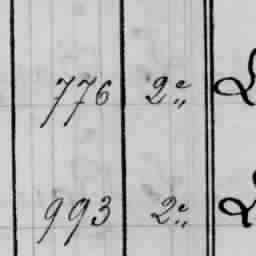 776 2e
993 2e